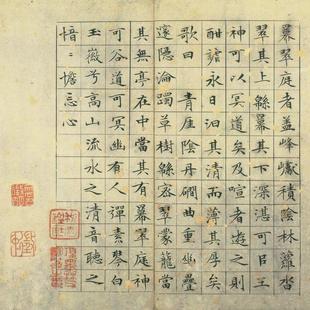 冪翠庭者蓋峰巘積陰林蘿沓
翠其上緜冪其下深湛可㠯王
神可以冥道矣及喧者遊之則
酣謔永日汩其清而薄其厚矣
歌曰青崖陰丹澗曲重幽疊
邃隱淪躅草樹緜冪翠蒙蘢當
其無亭在中當其有冪翠庭神
可谷道可冥幽有人彈素琴白
玉徽兮高山流水之清音聽之
愔〻憺忘心